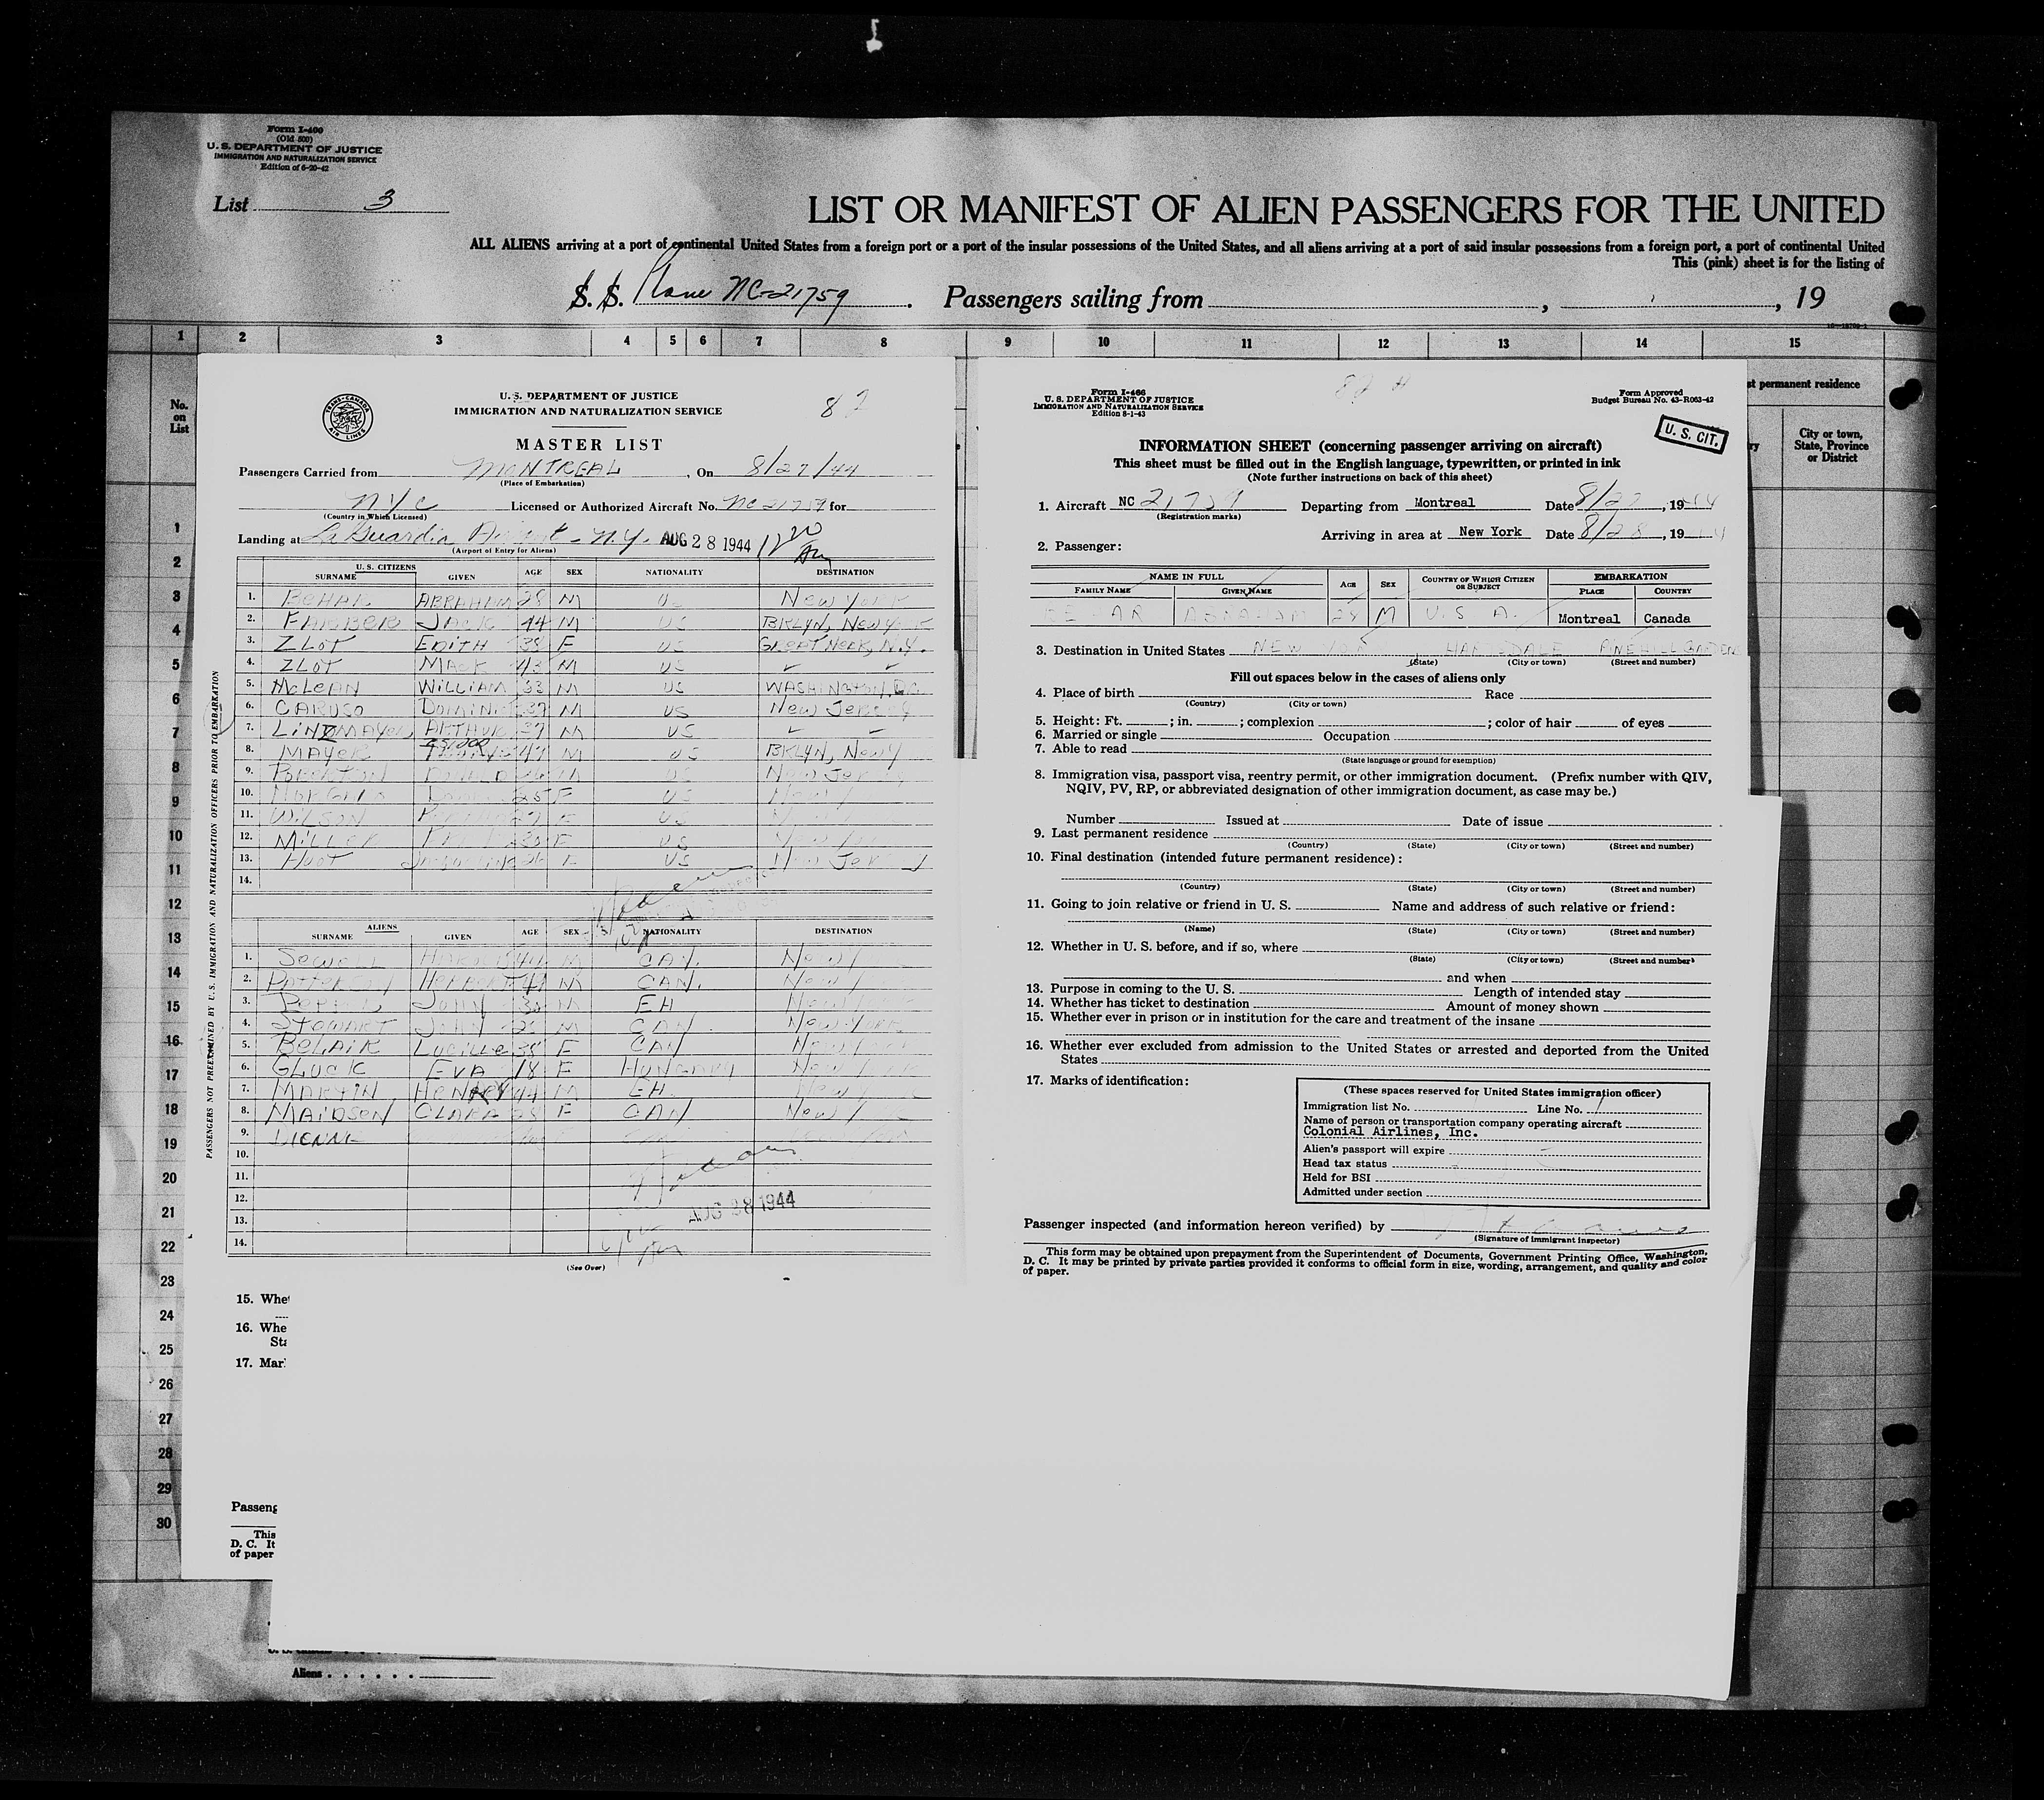 Form I-400
(Old 500)
U. S. DEPARTMENT OF JUSTICE
IMMIGRATION AND NATURALIZATION SERVICE
Edition of 6-20-42
List 3
LIST OR MANIFEST OF ALIEN PASSENGERS FOR THE UNITED
ALL ALIENS arriving at a port of continental United States from a foreign port or a port of the insular possessions of the United States, and all aliens arriving at a port of said insular possessions from a foreign port, a port of continental United
This (pink) sheet is for the listing of
S. S. Plane NC-21759. Passengers sailing from , , 19
1 2 3 4 5 6 7 8 9 10 11 12 13 14 15
No. on List
1
2
3
4
5
6
7
8
9
10
11
12
13
14
15
16
17
18
19
20
21
22
23
24
25
26
27
28
29
30
t permanent residence
ry
City or town, State, Province or District
PASSENGERS NOT PREEXAMINED BY U.S. IMMIGRATION AND NATURALIZATION OFFICERS PRIOR TO EMBARKATION
TRANS-CANADA AIR LINES
U. S. DEPARTMENT OF JUSTICE
IMMIGRATION AND NATURALIZATION SERVICE
82
MASTER LIST
Passengers Carried from MONTREAL, On 8/27/44
(Place of Embarkation)
NYC Licensed or Authorized Aircraft No. NC 21759 for
(Country in Which Licensed)
Landing at La Guardia Airport - N.Y. AUG 28 1944 1220 AM
(Airport of Entry for Aliens)
U. S. CITIZENS
SURNAME GIVEN AGE SEX NATIONALITY DESTINATION
1. BEHAR ABRAHAM 28 M US NEW YORK
2. FARBER JACK 44 M US BKLYN, NEW YORK
3. ZLOT EDITH 38 F US GREAT NECK, N.Y.
4. ZLOT MACK 43 M US
5. McLEAN WILLIAM 33 M US WASHINGTON, D.C.
6. CARUSO DOMINI 39 M US NEW JERSEY
7. LINZMAYER ARTHUR 37 M US
8. MAYER 47 M US BKLYN, NEW Y
9. M US NEW JERSEY
10. 25 F US NEW Y
11. WILSON F US
12. MILLER 30 F US NEW YORK
13. HUOT JAQUELINE 26 F US NEW JERSEY
14.
ALIENS
SURNAME GIVEN AGE SEX NATIONALITY DESTINATION
1. SEWELL M CAN. NEW Y
2. HERBERT M CAN. NEW Y
3. JOHN M EH NEW Y
4. STEWART JOHN M CAN NEW YORK
5. BELAIR LUCILLE 38 F CAN NEW YORK
6. GLUCK EVA 18 F HUNGARY NEW YORK
7. MARTIN HENREY 44 M EH NEW
8. MAIDSEN CLARA 28 F CAN NEW Y
9. VIENNE
10.
11.
12.
13.
14.
AUG 28 1944
(See Over)
15. Whet
16. Whe
Sta
17. Mar
Passeng
This
D. C. It
of paper
Aliens . . . . . .
82
Form I-466
U. S. DEPARTMENT OF JUSTICE
IMMIGRATION AND NATURALIZATION SERVICE
Edition 8-1-43
Form Approved
Budget Bureau No. 43-R063-42
U. S. CIT.
INFORMATION SHEET (concerning passenger arriving on aircraft)
This sheet must be filled out in the English language, typewritten, or printed in ink
(Note further instructions on back of this sheet)
1. Aircraft NC 21759 Departing from Montreal Date 8/27, 1944
(Registration marks)
Arriving in area at New York Date 8/28, 1944
2. Passenger:
NAME IN FULL
FAMILY NAME GIVEN NAME AGE SEX COUNTRY OF WHICH CITIZEN OR SUBJECT EMBARKATION
PLACE COUNTRY
BEHAR ABRAHAM 28 M U. S A. Montreal Canada
3. Destination in United States NEW YORK HARTSDALE PINE HILL GARDEN
(State) (City or town) (Street and number)
Fill out spaces below in the cases of aliens only
4. Place of birth Race
(Country) (City or town)
5. Height: Ft. ; in. ; complexion ; color of hair of eyes
6. Married or single Occupation
7. Able to read
(State language or ground for exemption)
8. Immigration visa, passport visa, reentry permit, or other immigration document. (Prefix number with QIV,
NQIV, PV, RP, or abbreviated designation of other immigration document, as case may be.)
Number Issued at Date of issue
9. Last permanent residence
(Country) (State) (City or town) (Street and number)
10. Final destination (intended future permanent residence):
(Country) (State) (City or town) (Street and number)
11. Going to join relative or friend in U. S. Name and address of such relative or friend:
(Name) (State) (City or town) (Street and number)
12. Whether in U. S. before, and if so, where
(State) (City or town) (Street and number)
and when
13. Purpose in coming to the U. S. Length of intended stay
14. Whether has ticket to destination Amount of money shown
15. Whether ever in prison or in institution for the care and treatment of the insane
16. Whether ever excluded from admission to the United States or arrested and deported from the United
States
17. Marks of identification:
(These spaces reserved for United States immigration officer)
Immigration list No. Line No. 1
Name of person or transportation company operating aircraft
Colonial Airlines, Inc.
Alien's passport will expire
Head tax status
Held for BSI
Admitted under section
Passenger inspected (and information hereon verified) by
(Signature of immigrant inspector)
This form may be obtained upon prepayment from the Superintendent of Documents, Government Printing Office, Washington,
D. C. It may be printed by private parties provided it conforms to official form in size, wording, arrangement, and quality and color
of paper.